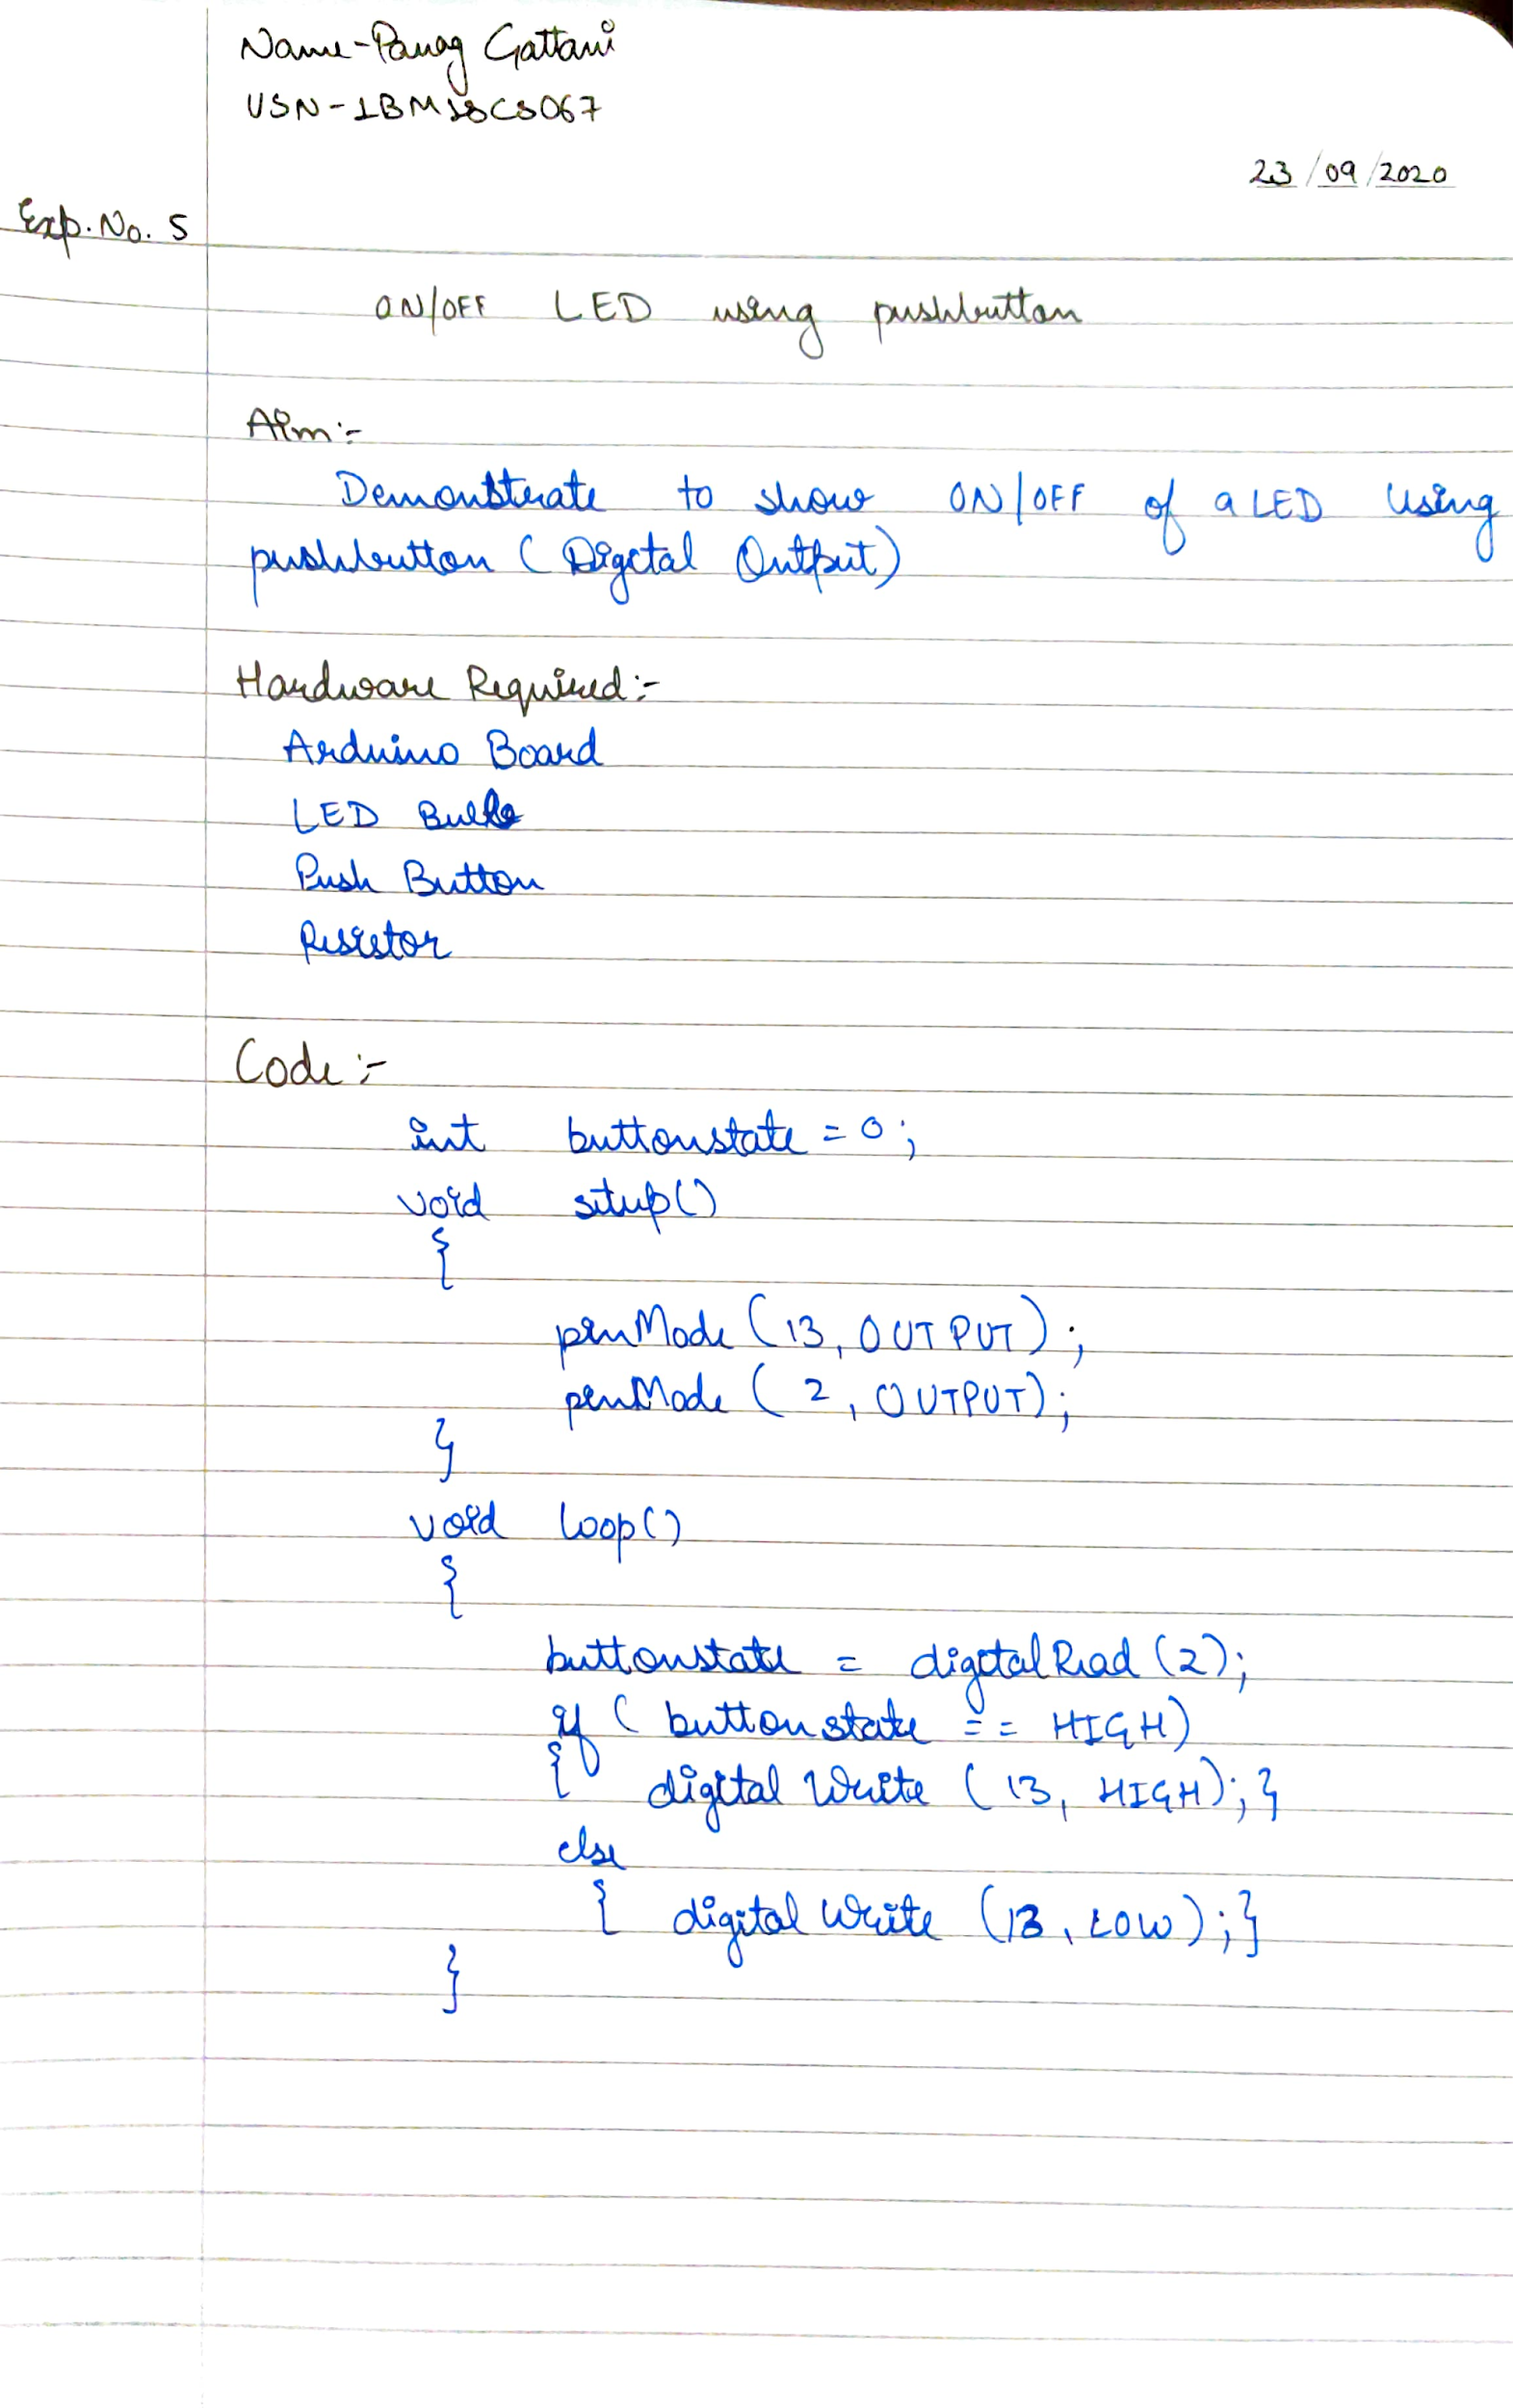 Name-Parag Gattani
USN-1BM18CS067
23/09/2020
Exp. No. 5
ON/OFF LED using pushbutton
Aim:-
Demonstrate to show ON/OFF of a LED using
pushbutton (Digital Output)
Hardware Required:-
Arduino Board
LED Bulb
Push Button
Resistor
Code:-
int buttonstate = 0;
void setup()
{
pinMode (13, OUTPUT);
pinMode (2, OUTPUT);
}
void loop()
{
buttonstate = digitalRead (2);
if ( buttonstate == HIGH)
{ digital Write ( 13, HIGH); }
else
{ digital Write (13, LOW); }
}